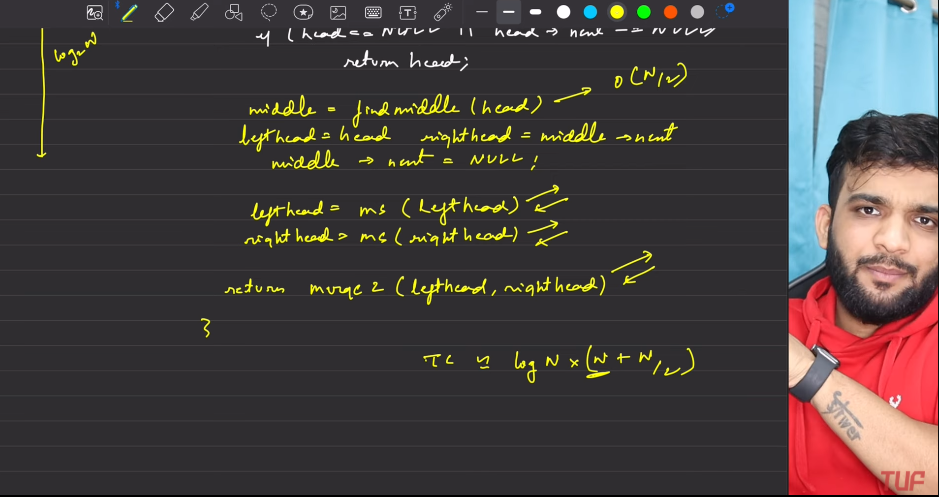 log₂N
if (head == NULL || head → next == NULL)
return head;
middle = findmiddle(head) → O(N/2)
lefthead = head righthead = middle → next
middle → next = NULL;
lefthead = ms (Lefthead)
righthead = ms (righthead)
return merge2 (lefthead, righthead)
}
TC ≃ log N × (N + N/2)
striver
TUF